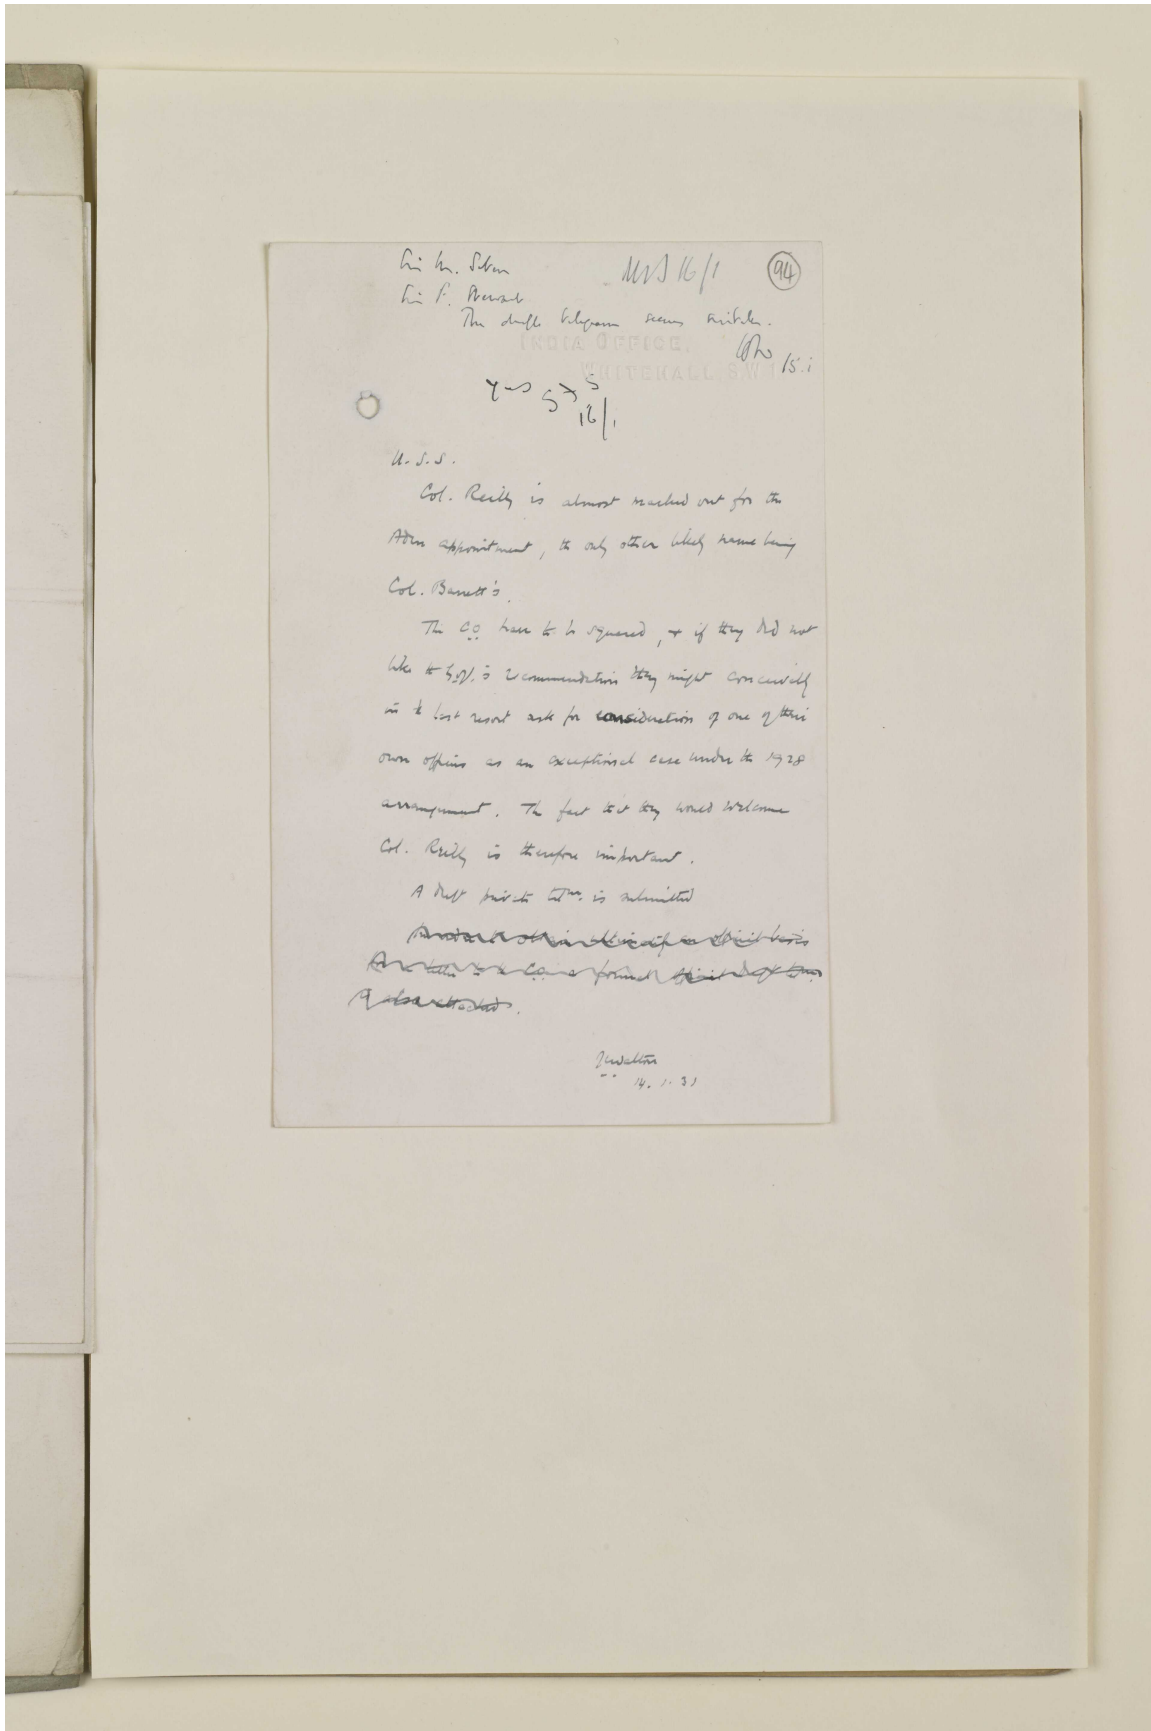 Sir M. Seton
Sir F. Stewart
MCS 16/1
94
The draft telegram seems suitable.
INDIA OFFICE,
WHITEHALL, S.W.1.
15.1
Yes
16/1
U.S.S.
Col. Reilly is almost marked out for the
Aden appointment, the only other likely name being
Col. Barrett's.
The C.O. have to be squared, & if they did not
like the G. of I.'s recommendation they might conceivably
in the last resort ask for consideration of one of their
own officers as an exceptional case under the 1928
arrangement. The fact that they would welcome
Col. Reilly is therefore important.
A draft private telm. is submitted
is also attached.
JCWalton
14. 1. 31